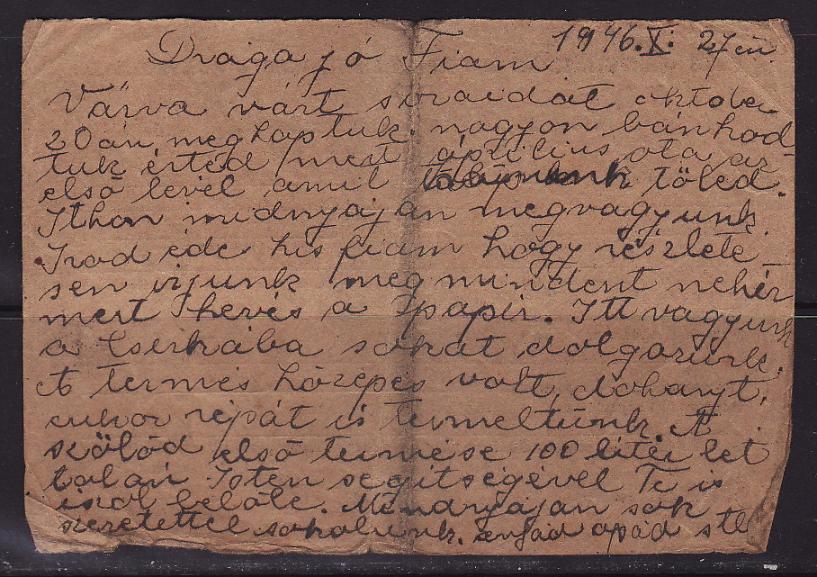 1946.X. 27én
Draga jó Fiam
Várva várt soraidat oktober
20án megkaptuk. nagyon bánkod-
tuk érted mert április ota az
első levél amit kaptunk tőled.
Itthon midnyájan megvagyunk.
Irod éde kis fiam hogy részlete_
sen irjunk meg mindent nehéz
mert kevés a papir. Itt vagyunk
a Cserkába sokat dolgozunk.
A termés közepes volt, dohanyt,
cukor répát is termeltünk. A
szőlőd első termése 100 liter let
talán Isten segitségével Te is
iszol belőle. Mindnyájan sok
szeretettel csokolunk. apád stb